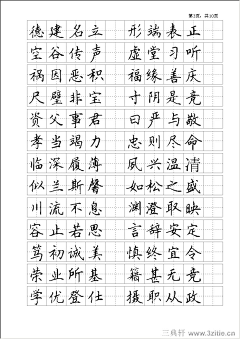 第3页，共10页
德建名立 形端表正
空谷传声 虚堂习听
祸因恶积 福缘善庆
尺璧非宝 寸阴是竞
资父事君 曰严与敬
孝当竭力 忠则尽命
临深履薄 夙兴温清
似兰斯馨 如松之盛
川流不息 渊澄取映
容止若思 言辞安定
笃初诚美 慎终宜令
荣业所基 籍甚无竞
学优登仕 摄职从政
三典轩 www.3zitie.cn